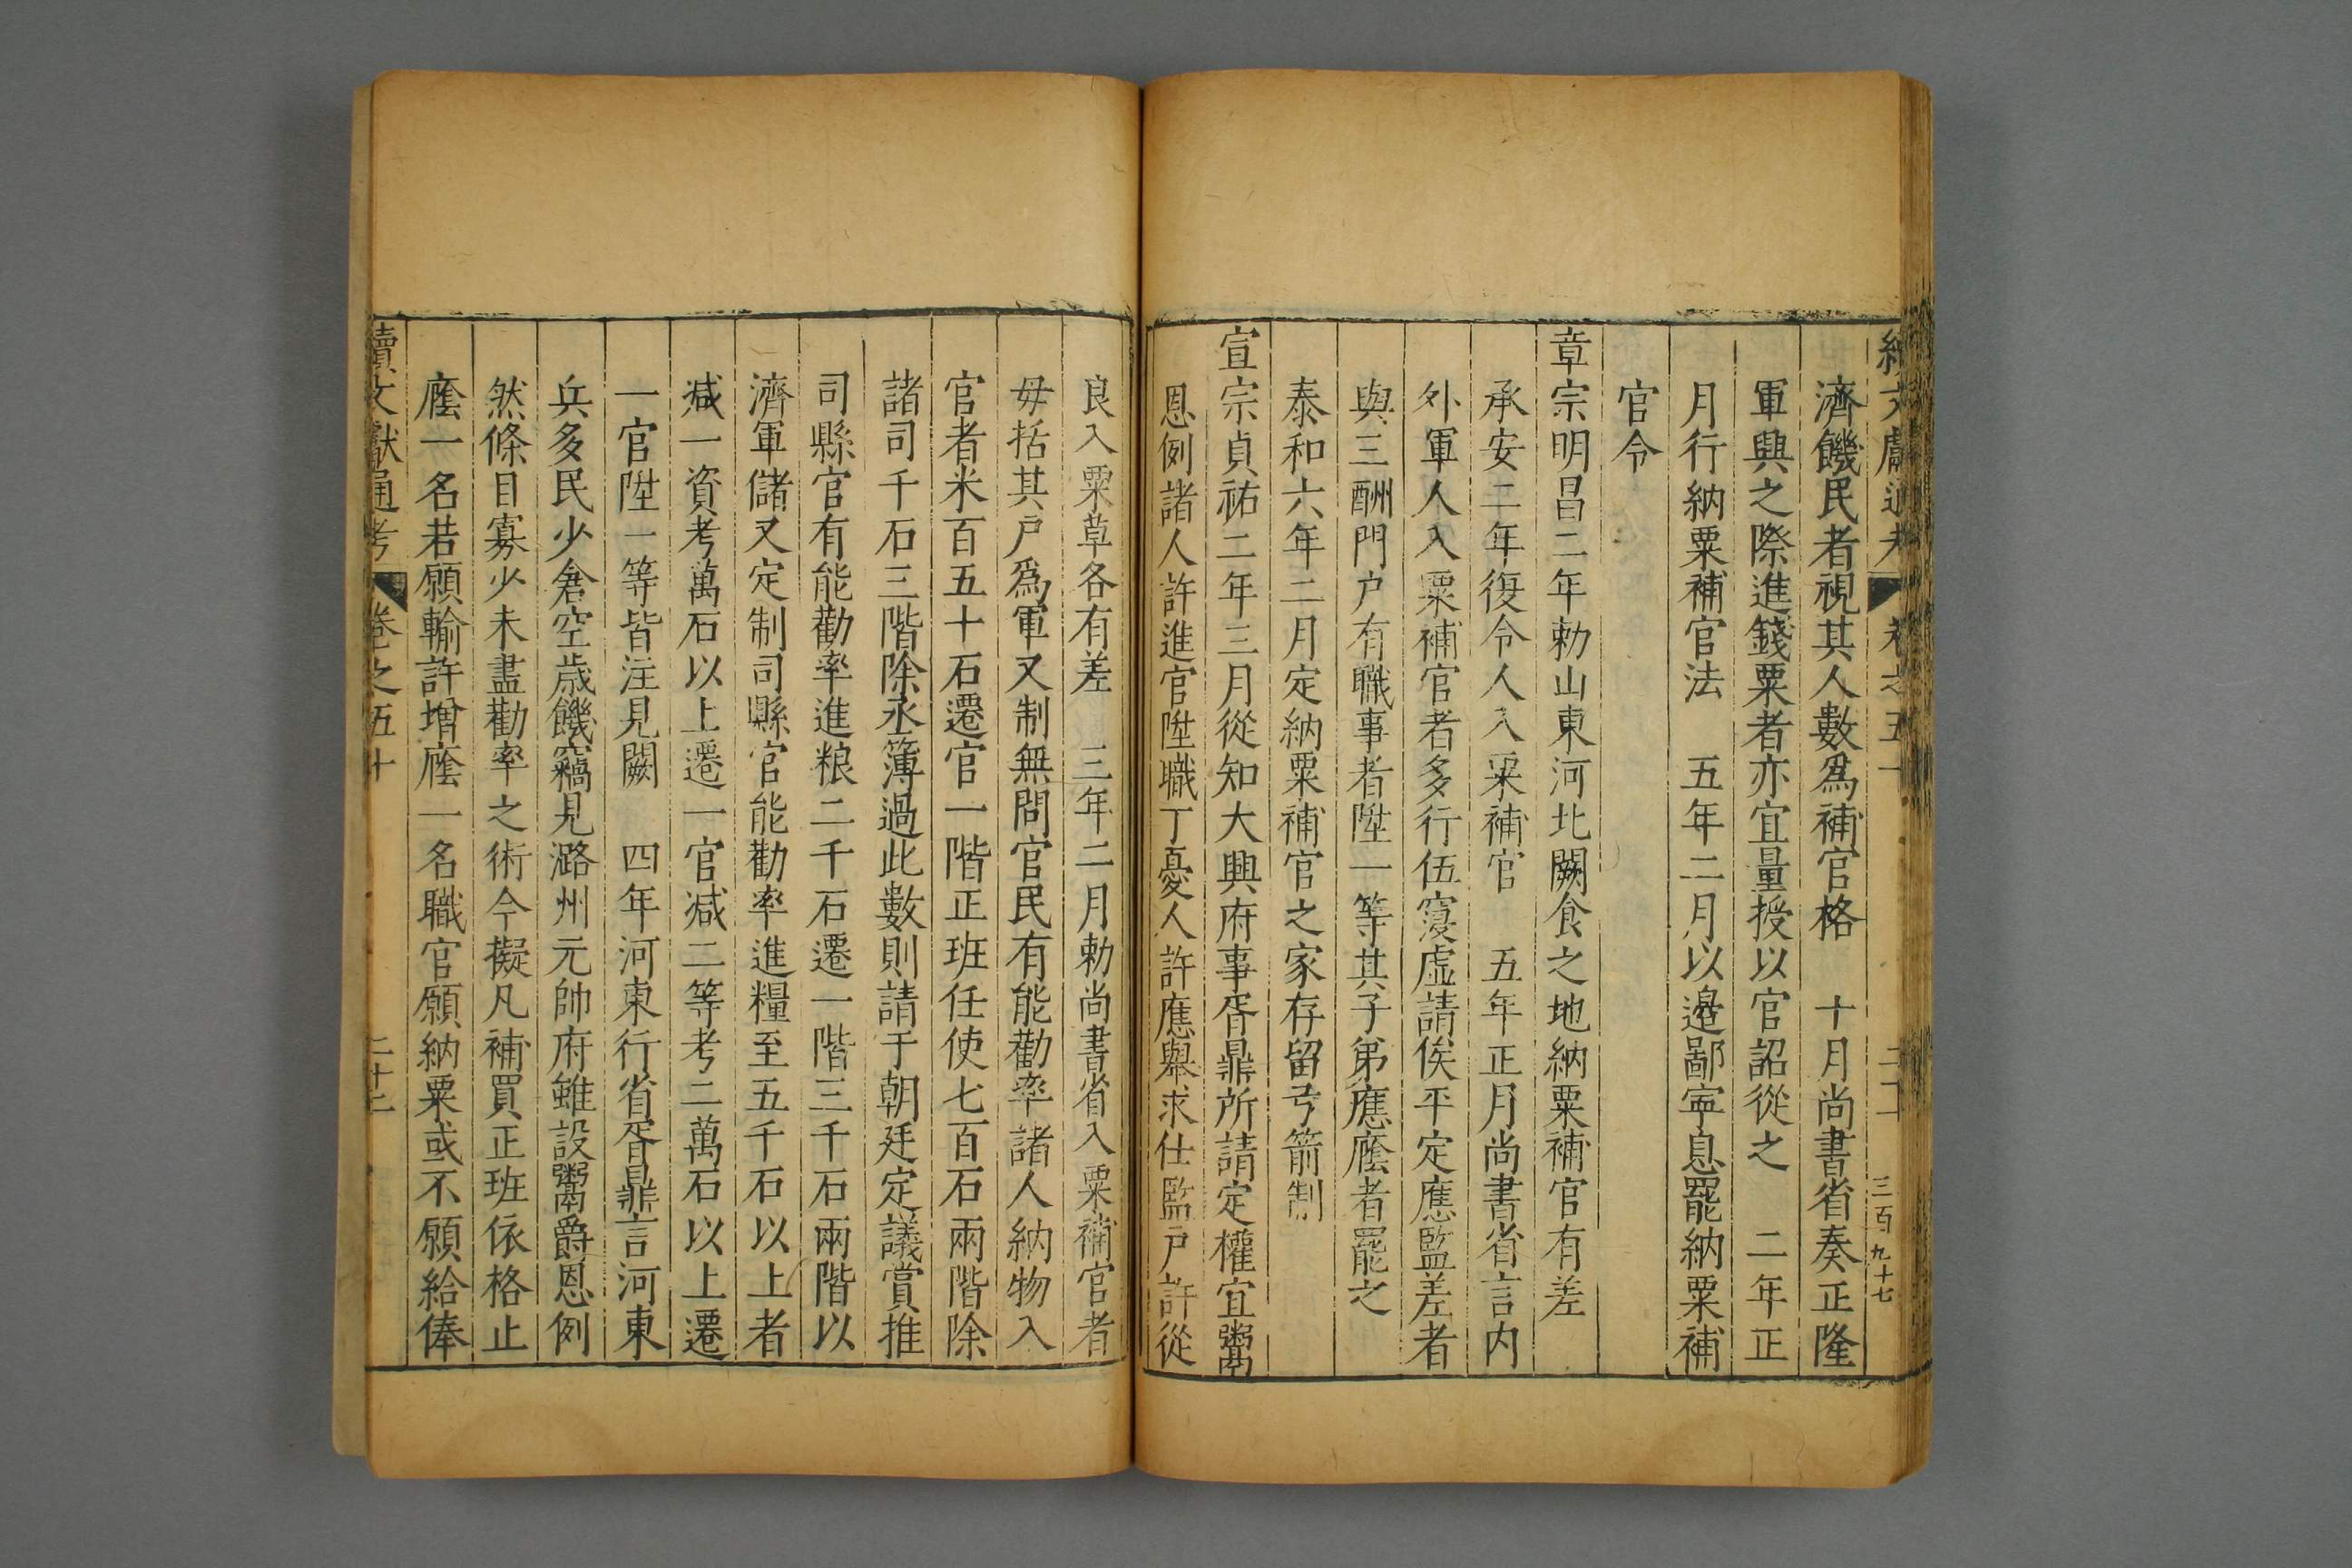 續文獻通考 卷之五十 三百九十七
濟饑民者視其人數爲補官格 十月尚書省奏正隆
軍興之際進錢粟者亦宜量授以官詔從之 二年正
月行納粟補官法 五年二月以邉鄙寜息罷納粟補
官令
章宗明昌二年勑山東河北闕食之地納粟補官有差
承安二年復令人入粟補官 五年正月尚書省言内
外軍人入粟補官者多行伍寖虚請俟平定應監差者
與三酬門户有職事者陞一等其子弟應廕者罷之
泰和六年二月定納粟補官之家存留弓箭制
宣宗貞祐二年三月從知大興府事胥鼎所請定權宜鬻
恩例諸人許進官陞職丁憂人許應舉求仕監戸許從
良入粟草各有差 三年二月勑尚書省入粟補官者
毋括其戸爲軍又制無問官民有能勸率諸人納物入
官者米百五十石遷官一階正班任使七百石兩階除
諸司千石三階除丞簿過此數則請于朝廷定議賞推
司縣官有能勸率進粮二千石遷一階三千石兩階以
濟軍儲又定制司縣官能勸率進糧至五千石以上者
減一資考萬石以上遷一官減二等考二萬石以上遷
一官陞一等皆注見闕 四年河東行省胥鼎言河東
兵多民少倉空歲饑竊見潞州元帥府雖設鬻爵恩例
然條目寡少未盡勸率之術今擬凡補買正班依格止
廕一名若願輸許增廕一名職官願納粟或不願給俸
續文獻通考 卷之五十 二十二